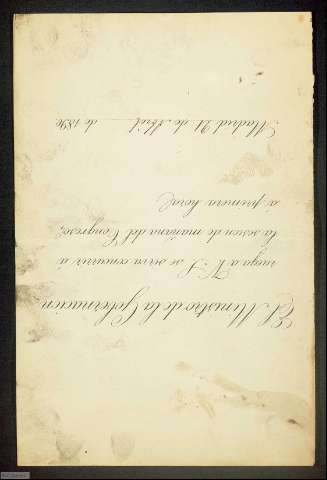 El Ministro de la Gobernación
ruega a V. S. se sirva concurrir á
la sesion de mañana del Congreso,
á primera hora.
Madrid 21 de Abril de 1890